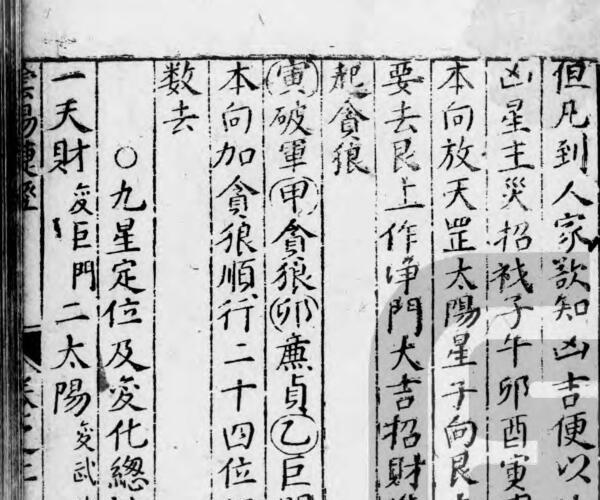 但凡到人家欲知凶吉便以
凶星主災招祸子午卯酉寅
本向放天罡太陽星子向艮
要去艮上作净門大吉招財
起貪狼
寅破軍甲貪狼卯亷貞乙巨門
本向加貪狼順行二十四位
数去
○九星定位及変化總
一天財変巨門二太陽変武
陰陽捷徑